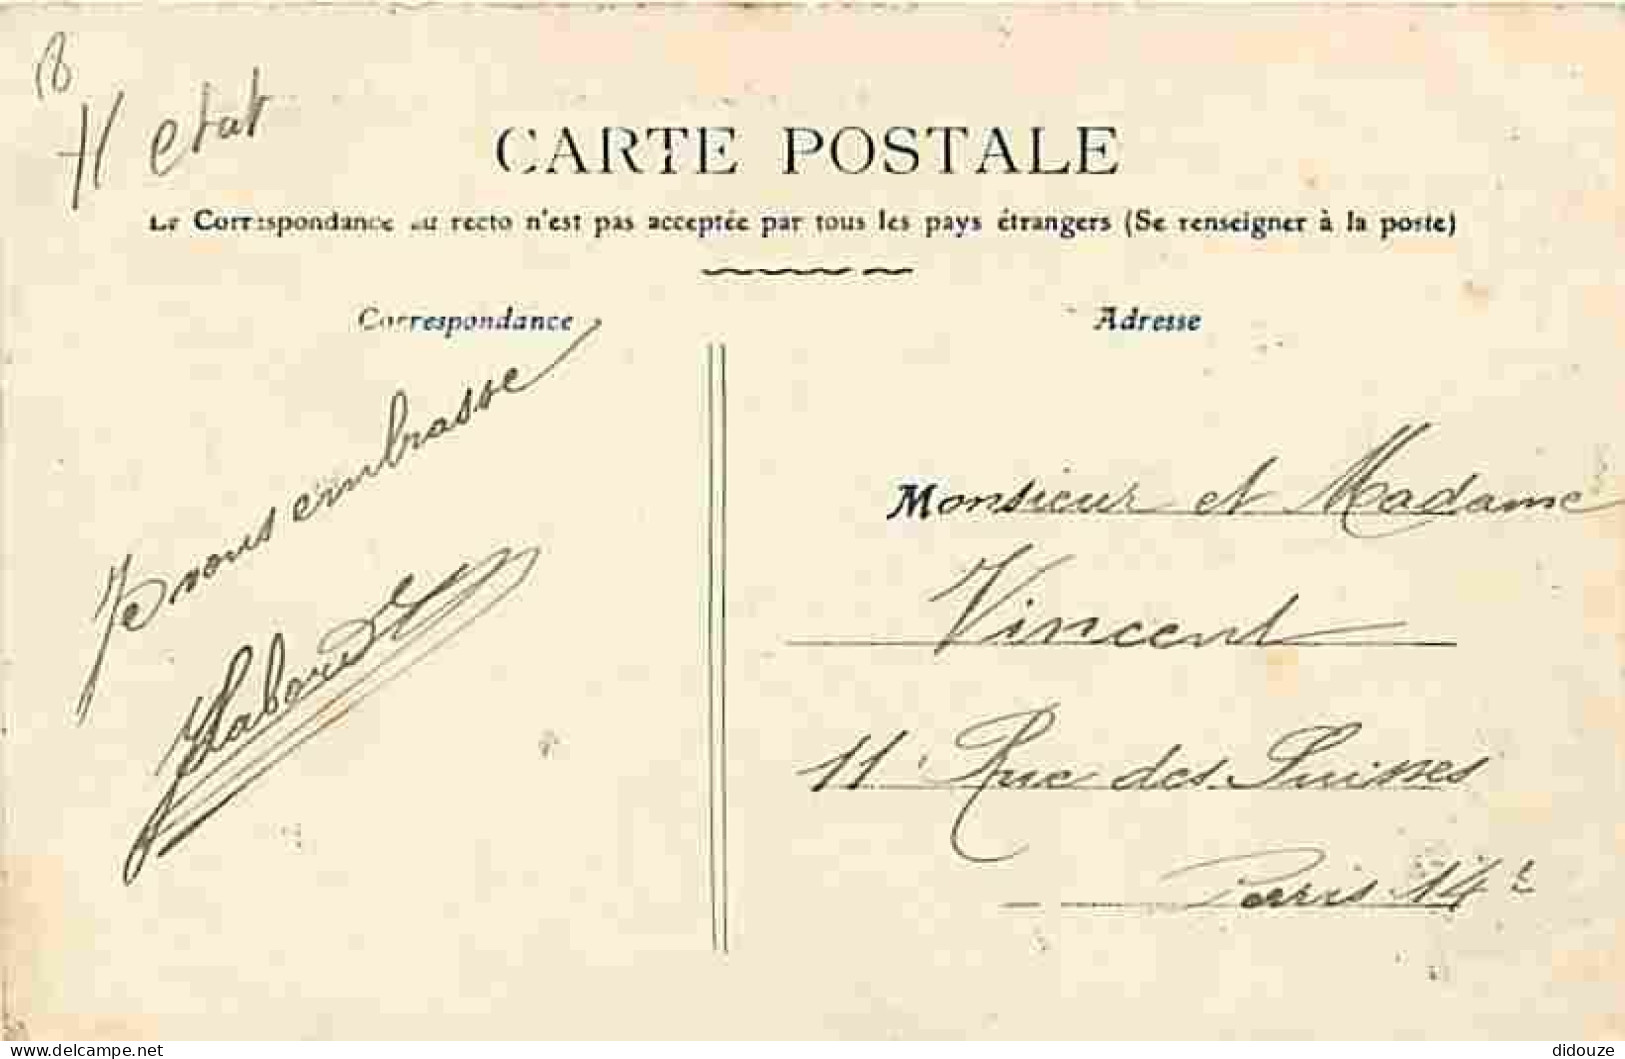 etat
CARTE POSTALE
La Correspondance au recto n'est pas acceptée par tous les pays étrangers (Se renseigner à la poste)
Correspondance
Je vous embrasse
Adresse
Monsieur et Madame
Vincent
11 Rue des Suisses
Paris 14e
delcampe.net
didouze